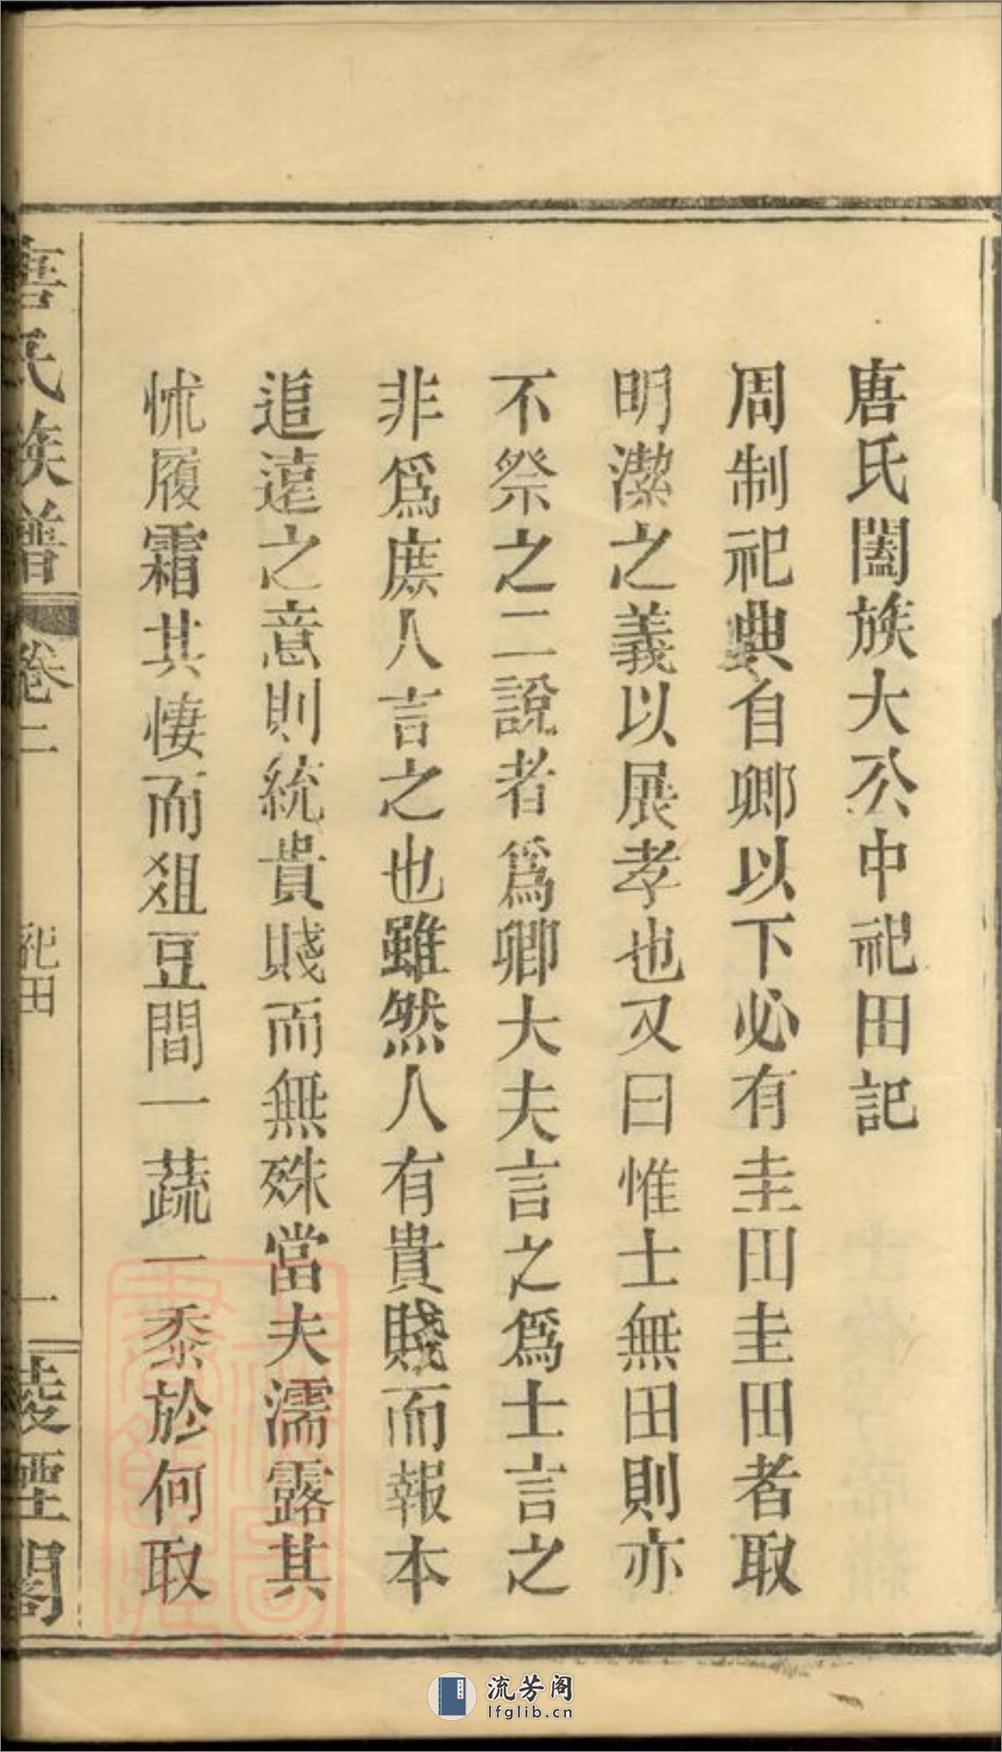 唐氏闔族大公中祀田記
周制祀典自卿以下必有圭田圭田者取
明潔之義以展孝也又曰惟士無田則亦
不祭之二說者爲卿大夫言之爲士言之
非爲庶人言之也雖然人有貴賤而報本
追遠之意則統貴賤而無殊當夫濡露其
怵履霜其悽而俎豆間一蔬一黍於何取
唐氏族譜
卷二
祀田
一
陵煙閣
流芳阁
lfglib.cn